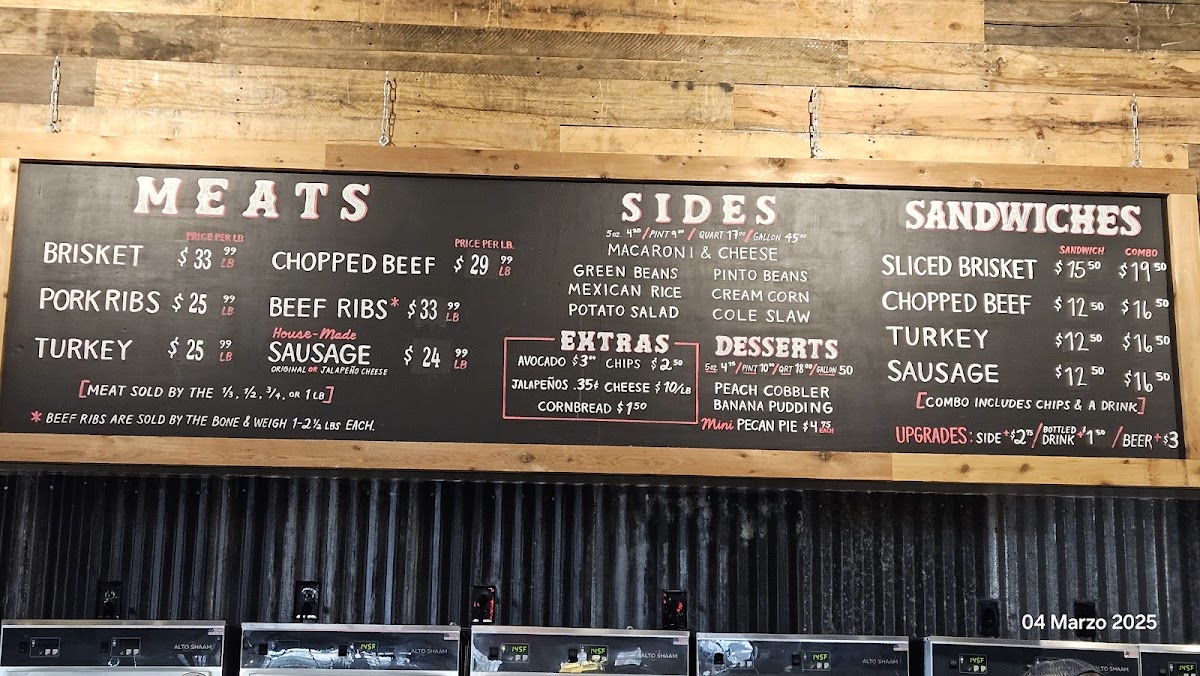 MEATS
PRICE PER LB
BRISKET $33 99 LB
PORK RIBS $25 99 LB
TURKEY $25 99 LB
PRICE PER LB.
CHOPPED BEEF $29 99 LB
BEEF RIBS* $33 99 LB
House-Made
SAUSAGE $24 99 LB
ORIGINAL OR JALAPEÑO CHEESE
[MEAT SOLD BY THE 1/3, 1/2, 3/4, OR 1 LB]
* BEEF RIBS ARE SOLD BY THE BONE & WEIGH 1-2 1/2 LBS EACH.
SIDES
5oz / PINT / QUART / GALLON 45 00
MACARONI & CHEESE
GREEN BEANS PINTO BEANS
MEXICAN RICE CREAM CORN
POTATO SALAD COLE SLAW
EXTRAS
AVOCADO $3 00 CHIPS $2 50
JALAPEÑOS .35¢ CHEESE $10/LB
CORNBREAD $1 50
DESSERTS
5oz / PINT 10 / QRT 18 00 / GALLON 50
PEACH COBBLER
BANANA PUDDING
Mini PECAN PIE $4.75 EACH
SANDWICHES
SANDWICH COMBO
SLICED BRISKET $15 50 $19 50
CHOPPED BEEF $12 50 $16 50
TURKEY $12 50 $16 50
SAUSAGE $12 50 $16 50
[COMBO INCLUDES CHIPS & A DRINK]
UPGRADES: SIDE +$2 75 / BOTTLED DRINK +$1 50 / BEER +$3
04 Marzo 2025
ALTO SHAAM
145F
ALTO SHAAM
145F
145F
ALTO SHAAM
145F
ALTO SHAAM
145F
ALTO SHAAM
145F